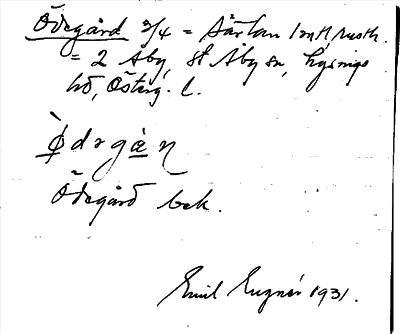 Ödegård 3/4 = Särtan 1 mtl, rusth.
= 2 Åby, St Åby sn, Lysings
hd, Österg. l.
Ö̀dǝgạ̀ṇ
Ödegård bek.
Emil 1931.